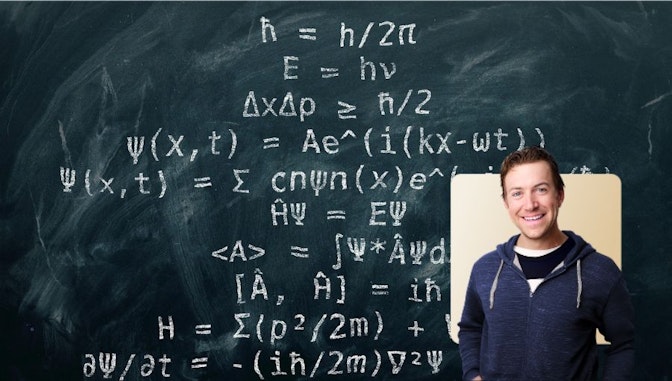 ħ = h/2π
E = hν
ΔxΔp ≥ ħ/2
ψ(x,t) = Ae^(i(kx-ωt))
Ψ(x,t) = Σ cnψn(x)e^(
ĤΨ = EΨ
<A> = ∫Ψ*ÂΨd
[Â, Ĥ] = iħ
H = Σ(p²/2m) +
∂Ψ/∂t = -(iħ/2m)∇²Ψ